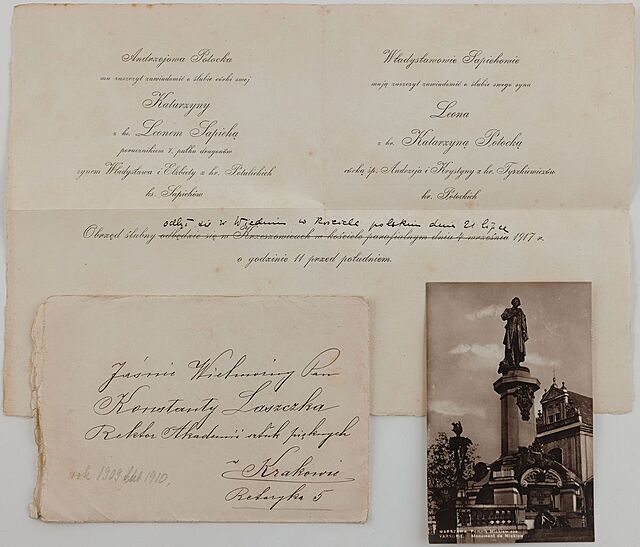 Andrzejowa Potocka
ma zaszczyt zawiadomić o ślubie córki swej
Katarzyny
z ks. Leonem Sapiehą
porucznikiem 7. pułku dragonów
synem Władysława i Elżbiety z hr. Potulickich
ks. Sapiehów
Władysławowie Sapiehowie
mają zaszczyt zawiadomić o ślubie swego syna
Leona
z hr. Katarzyną Potocką
córką śp. Andrzeja i Krystyny z hr. Tyszkiewiczów
hr. Potockich
odbył się w Wiedniu w kościele polskim dnia 21 lipca
Obrzęd ślubny odbędzie się w Krzeszowicach w kościele parafialnym dnia 4 września 1917 r.
o godzinie 11 przed południem.
Jaśnie Wielmożny Pan
Konstanty Laszczka
Rektor Akademii sztuk pięknych
w Krakowie
Retoryka 5
rok 1909 lub 1910,
WARSZAWA. Pomnik Mickiewicza
VARSOVIE. Monument de Mickiew